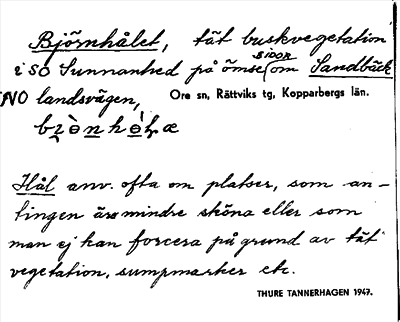 Björnhålet, tät buskvegetation
i SO Sunnanhed på ömse sidor om Sandbäck
NO landsvägen, Ore sn, Rättviks tg, Kopparbergs län.
Hål anv. ofta om platser, som an-
tingen äro mindre sköna eller som
man ej kan forcera på grund av tät
vegetation, sumpmarker etc.
THURE TANNERHAGEN 1947.